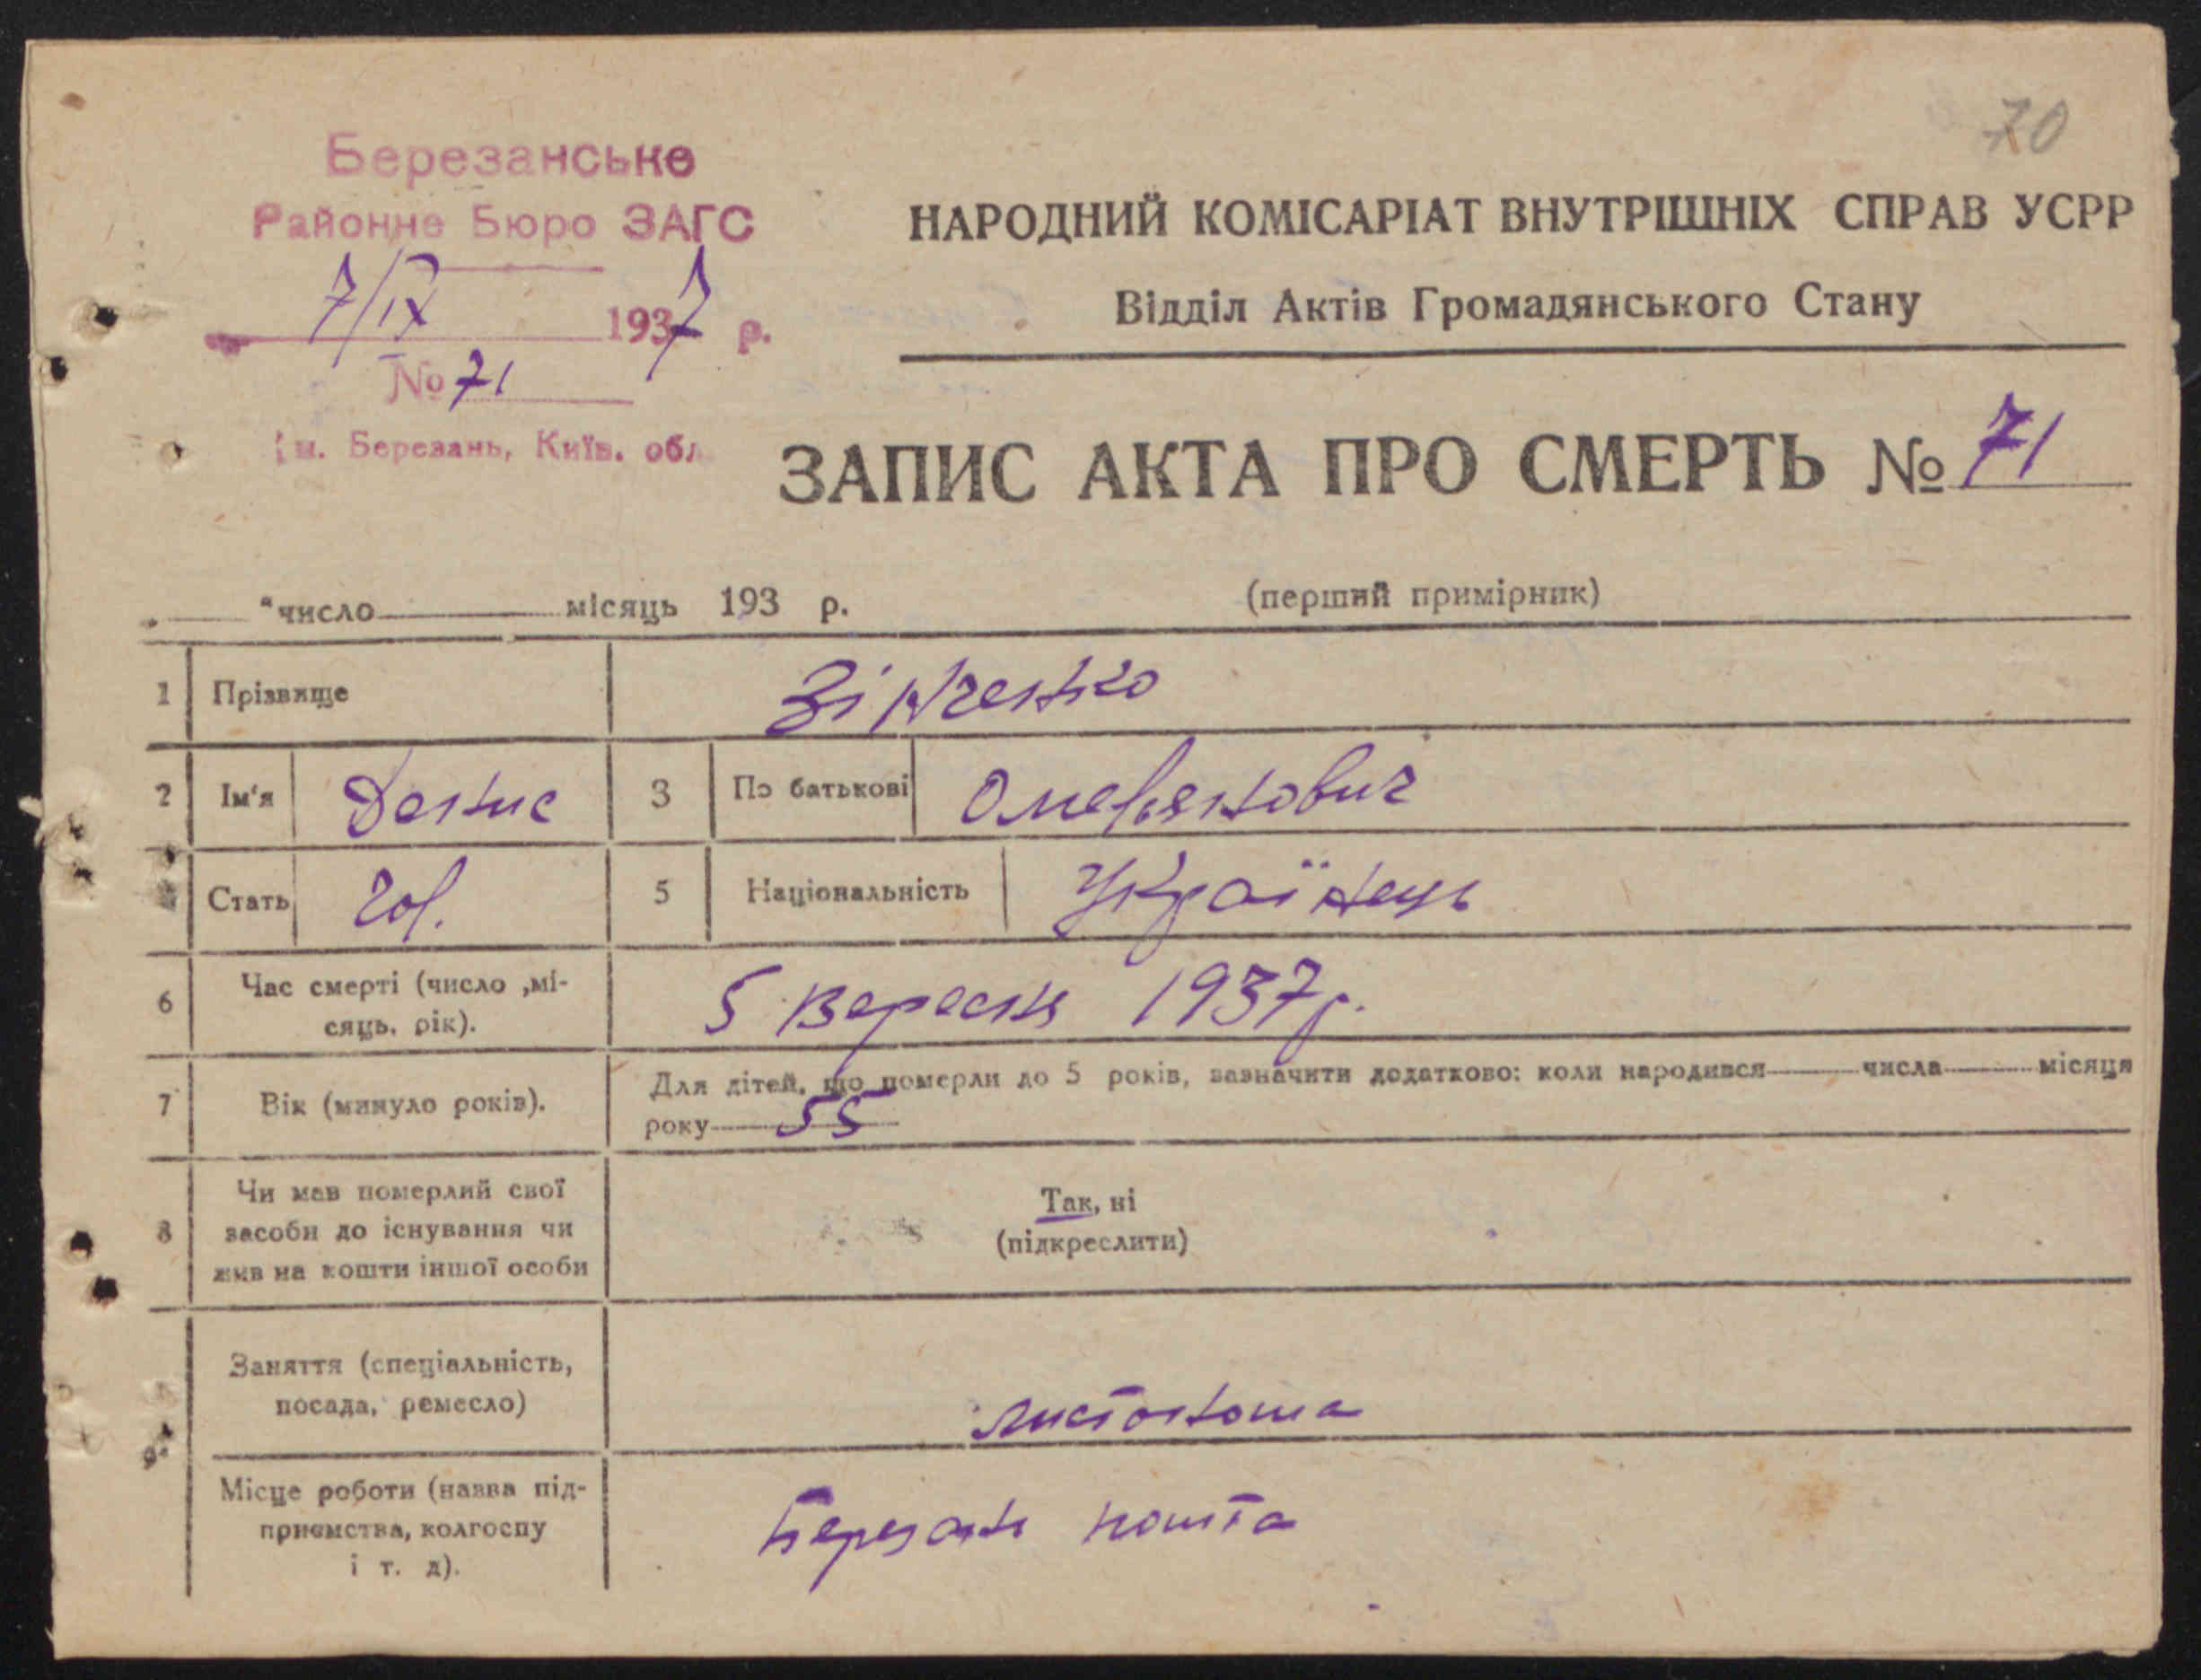 70
Березанське
Районне Бюро ЗАГС
7/IX 1937 р.
№ 71
м. Березань, Київ. обл.
НАРОДНИЙ КОМІСАРІАТ ВНУТРІШНІХ СПРАВ УСРР
Відділ Актів Громадянського Стану
ЗАПИС АКТА ПРО СМЕРТЬ № 71
„ “ число місяць 193 р.
(перший примірник)
1 Прізвище Зінченко
2 Ім'я Денис 3 По батькові Омелянович
Стать чол. 5 Національність Українець
6 Час смерті (число ,мі-
сяць, рік). 5 вересня 1937 р.
7 Вік (минуло років). Для дітей, що померли до 5 років, зазначити додатково: коли народився числа місяця
року 55
8 Чи мав померлий свої
засоби до існування чи
жив на кошти іншої особи
Так, ні
(підкреслити)
9. Заняття (спеціальність,
посада, ремесло) листоноша
Місце роботи (назва під-
приємства, колгоспу
і т. д). Березань пошта